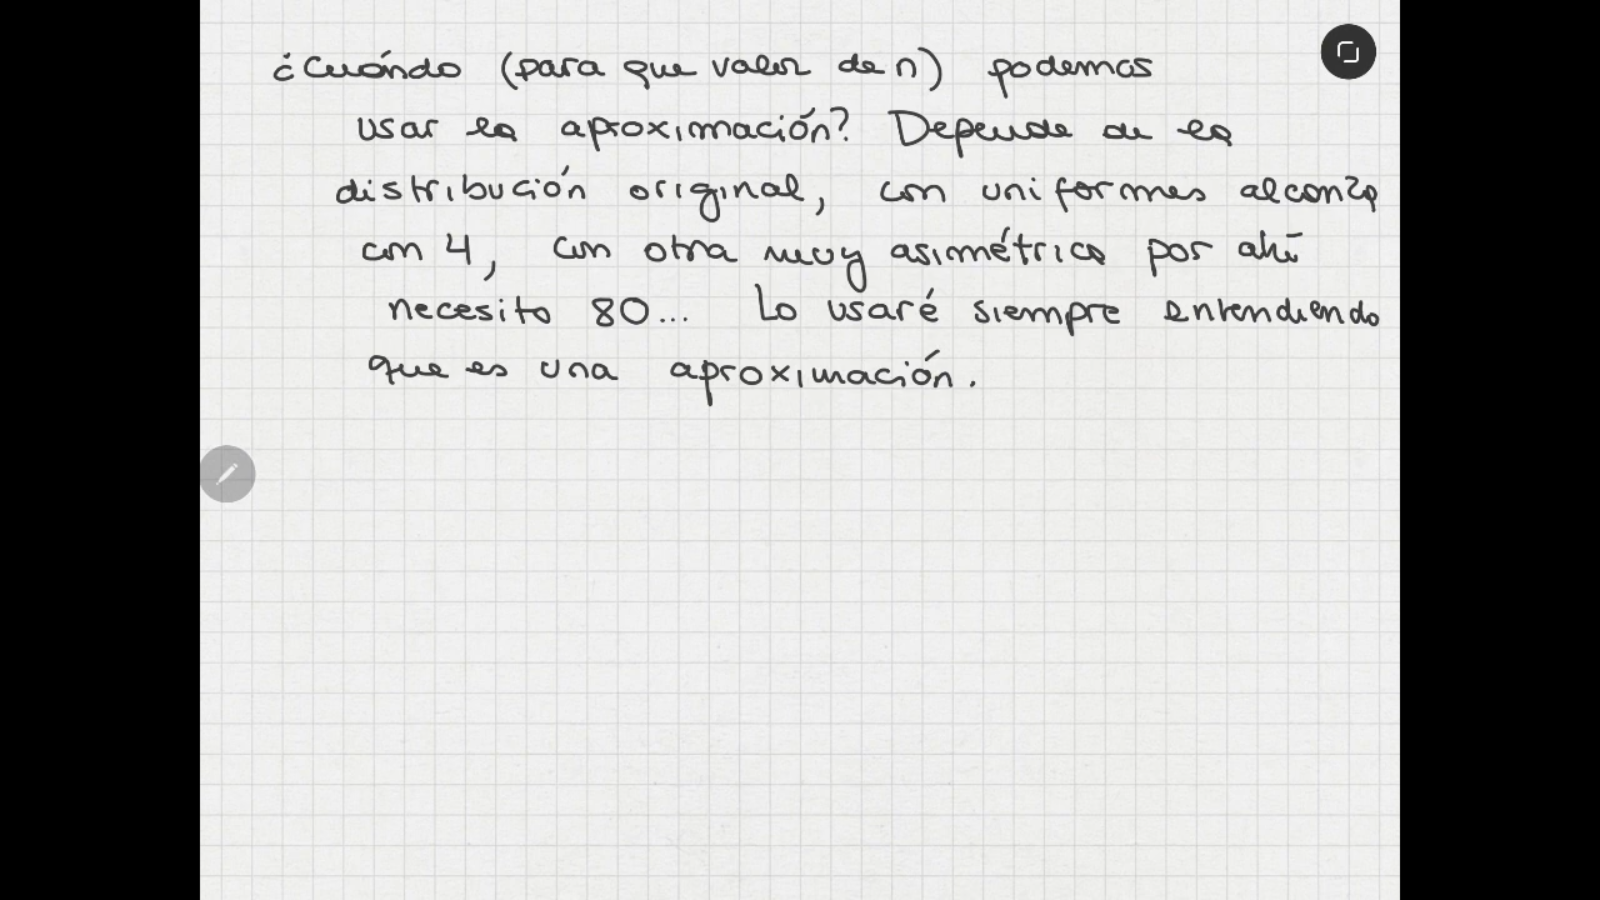 ¿Cuándo (para que valor de n) podemos
usar la aproximación? Depende de la
distribución original, con uniformes alcanza
con 4, con otra muy asimétrica por ahí
necesito 80... Lo usaré siempre entendiendo
que es una aproximación.